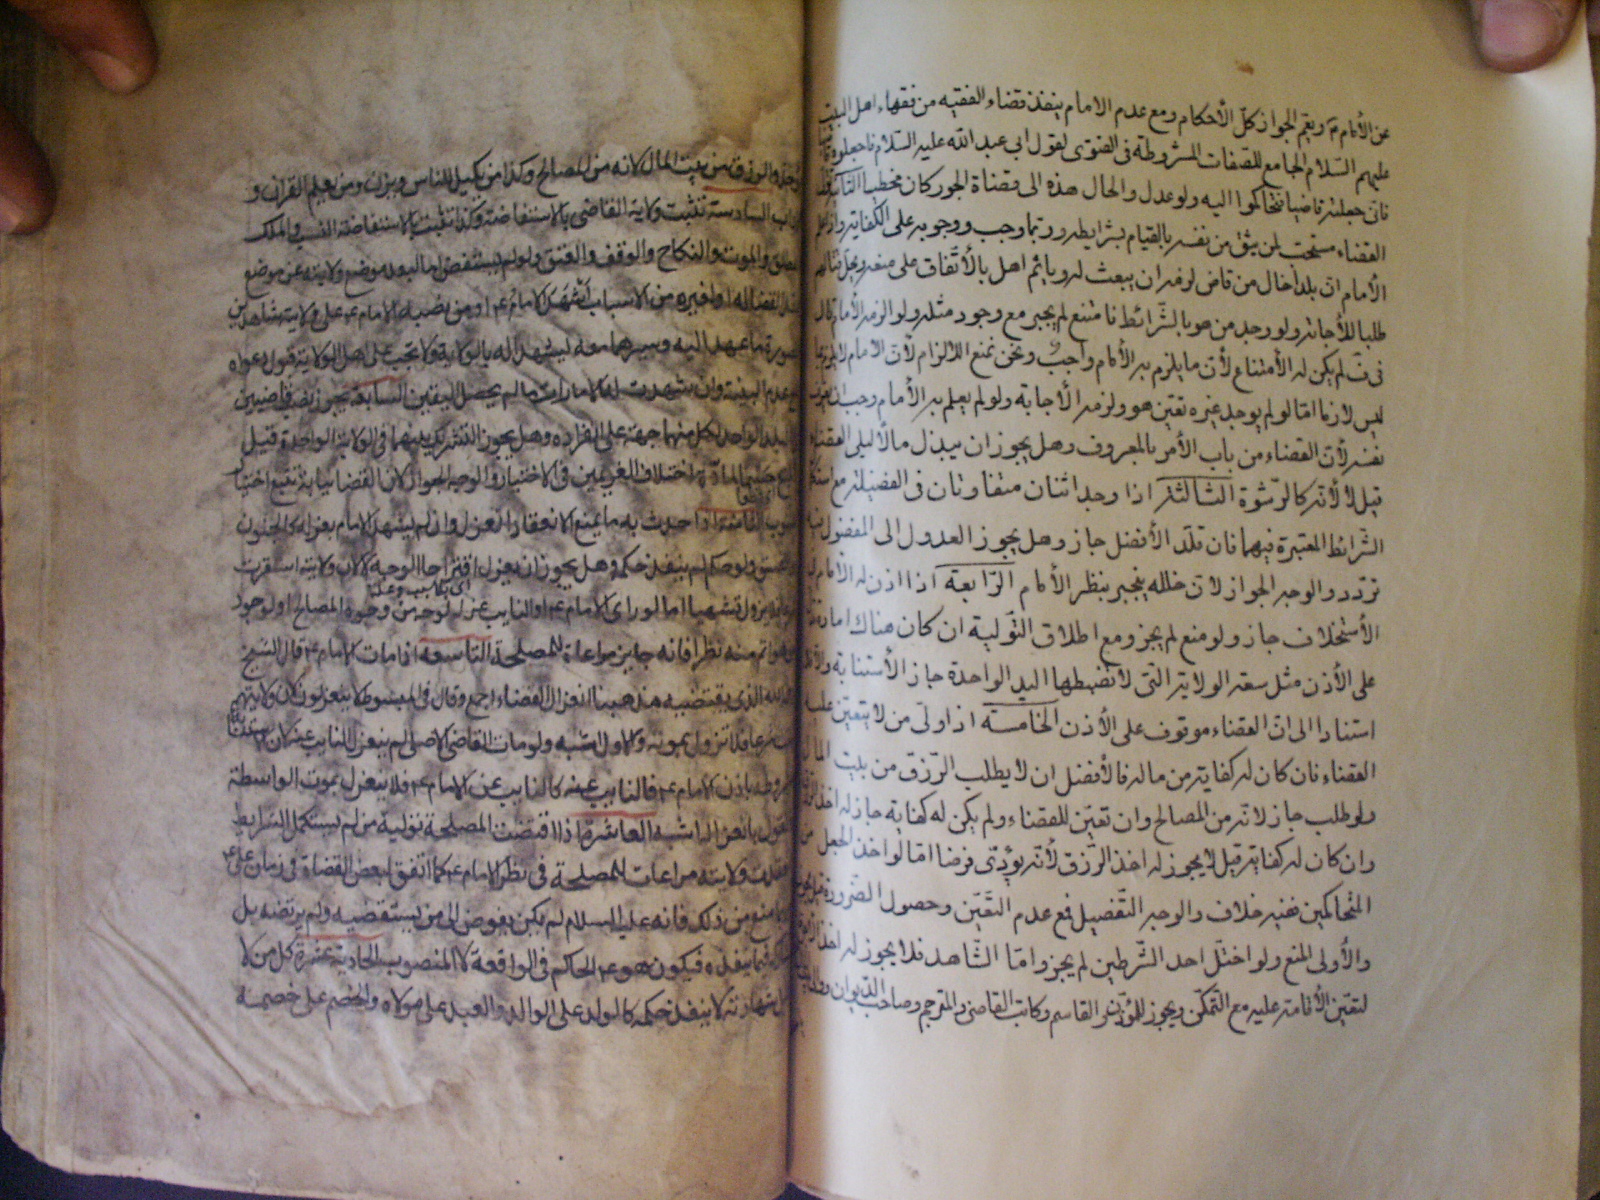 عن الأمام ع ويعم الجواز كل الأحكام ومع عدم الامام ينفذ قضاء الفقيه من فقهاء اهل البيت
عليهم السلام الجامع للصفات المشروطة فى الفتوى لقول ابى عبد الله عليه السلام فاجعلوه
فانى جعلته قاضيا فتحاكموا اليه ولو عدل والحال هذه الى قضاة الجور كان مخطيا الثانية
القضاء مستحب لمن يثق من نفسه بالقيام بشرايطه وربما وجب ووجوبه على الكفاية واذا علم
الأمام ان بلدا خال من قاض لزمه ان يبعث له ويأثم اهل بالأتفاق على منعه ويحل قتالهم
طلبا للأجابة ولو وجد من هو بالشرائط فامتنع لم يجبر مع وجود مثله ولو الزمه الأمام قال
فى ف لم يكن له الأمتناع لأن ما يلزم به الأمام واجب ونحن نمنع الالزام لأن الامام لا يلزم بما
ليس لازما اما لو لم يوجد غيره تعين هو ولزمه الأجابة ولو لم يعلم به الأمام وجب ان يعرف
نفسه لأن القضاء من باب الأمر بالمعروف وهل يجوز ان يبذل مالا ليلى القضاء
قيل لا لأنه كالرشوة الثالثة اذا وجد اثنان متفاوتان فى الفضيلة مع استكمال
الشرائط المعتبرة فيهما فان قلد الأفضل جاز وهل يجوز العدول الى المفضول فيه
تردد والوجه الجواز لان خلله ينجبر بنظر الأمام الرابعة اذا اذن له الأمام فى
الأستخلاف جاز ولو منع لم يجز ومع اطلاق التولية ان كان هناك امارة
على الأذن مثل سعة الولاية التى لا تضبطها اليد الواحدة جاز الأستنابة والا
استنادا الى ان القضاء موقوف على الأذن الخامسة اذا ولى من لا يتعين عليه
القضاء فان كان له كفاية من ماله فالأفضل ان لا يطلب الرزق من بيت المال
ولو طلب جاز لانه من المصالح وان تعين للقضاء ولم يكن له كفاية جاز له اخذ الرزق
وان كان له كفاية قيل لا يجوز له اخذ الرزق لأنه يؤدى فرضا اما لو اخذ الجعل من
المتحاكمين ففيه خلاف والوجه التفصيل فمع عدم التعين وحصول الضرورة قيل يجوز
والأولى المنع ولو اختل احد الشرطين لم يجز واما الشاهد فلا يجوز له اخذ الاجرة
لتعين الأقامة عليه مع التمكن ويجوز للمؤذن والقاسم وكاتب القاضى والمترجم وصاحب الديوان
الرزق من بيت المال لانه من المصالح وكذا من يكيل للناس ويزن ومن يعلم القران و
السادسة تثبت ولاية القاضى بالاستفاضة وكذا يثبت بالاستفاضة النسب والملك
المطلق والموت والنكاح والوقف والعتق ولو لم يستفض اما لبعد موضع ولايته عن موضع
عقد القضا له او لغيره من الاسباب اشهد الامام ع او من نصبه الامام ع على ولايته شاهدين
بصورة ما عهد اليه وسيرهما معه ليشهدا له بالولاية ولا يجب على اهل الولاية قبول دعواه
مع عدم البينة وان شهدت له الامارات ما لم يحصل اليقين السابعة يجوز نصب قاضيين
فى البلد الواحد لكل منهما جهة على انفراده وهل يجوز التشريك بينهما فى الولاية الواحدة قيل
بالمنع حسما لمادة اختلاف الغريمين فى الاختيار والوجه الجواز لان القضا نيابة تتبع اختيار
المنوب الثامنة اذا حدث به ما يمنع الانعقاد انعزل وان لم يشهد الامام بعزله كالجنون
والفسق ولو حكم لم ينفذ حكمه وهل يجوز ان يعزل اقتراحا الوجه لا لان ولايته استقرت
شرعا فلا يزول تشهيا اما لو راى الامام ع او النايب عزله لوجه من وجوه المصالح او لوجود
من هو اتم منه نظرا فانه جايز مراعاة للمصلحة التاسعة اذا مات الامام ع قال الشيخ
رحمه الله الذى يقتضيه مذهبنا انعزال القضاة اجمع وقال فى المبسوط لا ينعزلون لان ولايتهم
ثبتت شرعا فلا تزول بموته والاول اشبه ولو مات القاضى الاصلى لم ينعزل النايب عنه لان
مشروطة باذن الامام ع فالنايب عنه كالنايب عن الامام ع فلا ينعزل بموت الواسطة
والقول بانعزاله اشبه العاشرة اذا اقتضت المصلحة تولية من لم يستكمل الشرايط
انعقدت ولايته مراعات للمصلحة فى نظر الامام ع كما اتفق لبعض القضاة فى زمان على ع
وربما منع من ذلك فانه عليه السلام لم يكن يفوض الى من يستقضيه ولم يرتضه بل
يشاركه فيما ينفذه فيكون هو ع الحاكم فى الواقعة لا المنصوب الحادية عشرة كل من لا
تقبل شهادته لا ينفذ حكمه كالولد على الوالد والعبد على مولاه والخصم على خصمه